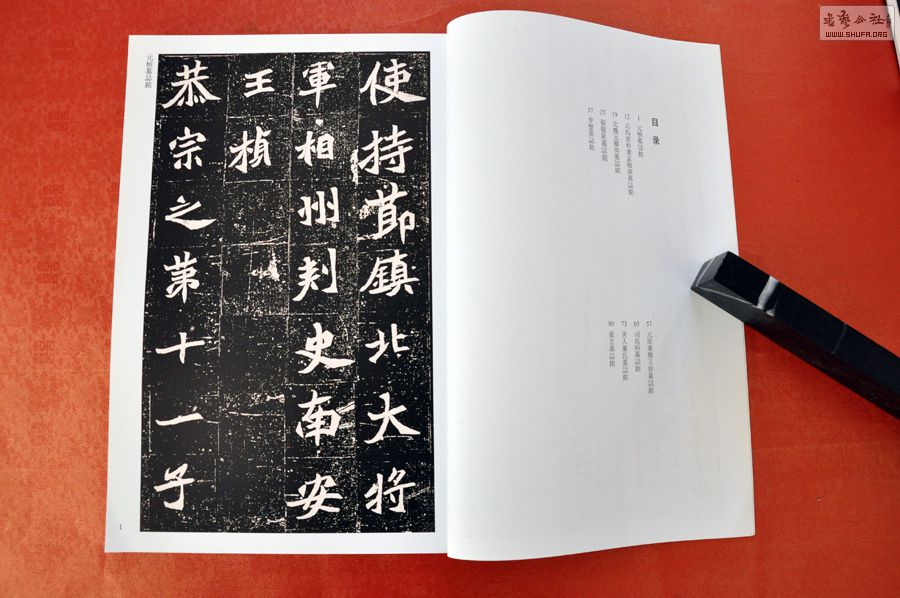 書藝公社
WWW.SHUFA.ORG
目录
1 元楨墓誌銘
12 司馬景和妻孟敬訓墓誌銘
19 北魏元顯儁墓誌銘
25 崔敬邕墓誌銘
37 李璧墓誌銘
57 元珽妻穆玉容墓誌銘
65 司馬昞墓誌銘
73 美人董氏墓誌銘
90 張玄墓誌銘
使持節鎮北大將
軍相州刾史南安
王楨
恭宗之第十一子
元楨墓誌銘
1